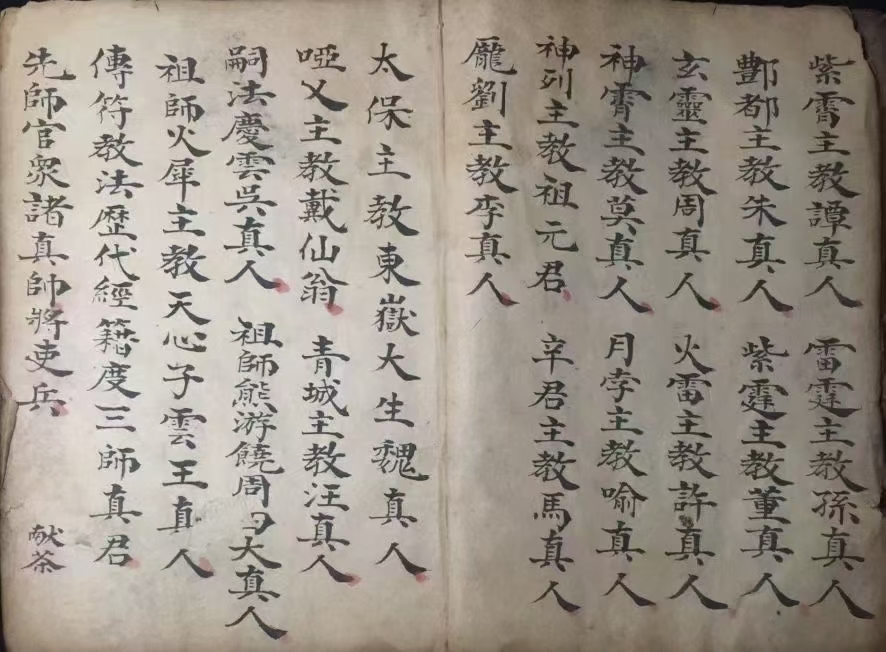 紫霄主教譚真人 雷霆主教孫真人
酆都主教朱真人 紫霆主教董真人
玄靈主教周真人 火雷主教許真人
神霄主教莫真人 月孛主教喻真人
神列主教祖元君 辛君主教馬真人
龐劉主教李真人
太保主教東嶽大生魏真人
啞乂主教戴仙翁 青城主教汪真人
嗣法慶雲吳真人 祖師熊游饒周大真人
祖師火犀主教天心子雲王真人
傳符教法歷代經籍度三師真君
先師官衆諸真師將吏兵 献茶